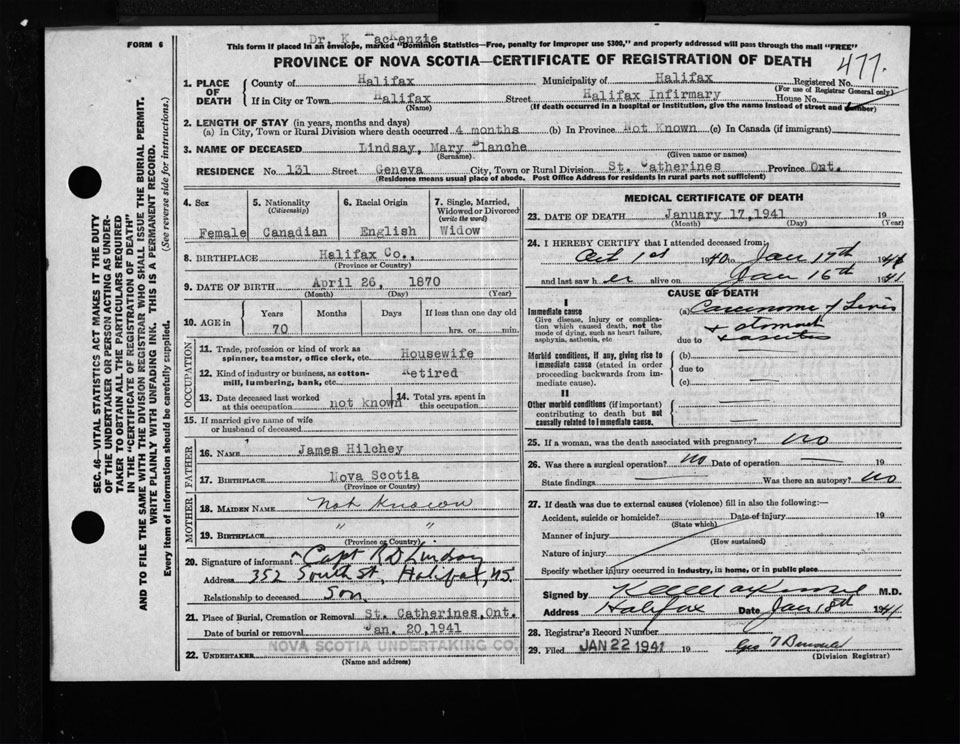 Dr. K. MacKenzie
FORM 6
This form if placed in an envelope, marked "Dominion Statistics—Free, penalty for improper use $300," and properly addressed will pass through the mail "FREE"
PROVINCE OF NOVA SCOTIA—CERTIFICATE OF REGISTRATION OF DEATH
477.
1. PLACE OF DEATH County of Halifax Municipality of Halifax Registered No.
(For use of Registrar General only)
If in City or Town Halifax Street Halifax Infirmary House No.
(Name) (If death occurred in a hospital or institution, give the name instead of street and number)
2. LENGTH OF STAY (in years, months and days)
(a) In City, Town or Rural Division where death occurred 4 months (b) In Province Not Known (c) In Canada (if immigrant)
3. NAME OF DECEASED Lindsay, Mary Blanche
(Surname) (Given name or names)
RESIDENCE No. 131 Street Geneva City, Town or Rural Division St. Catherines Province Ont.
(Residence means usual place of abode. Post Office Address for residents in rural parts not sufficient)
4. Sex Female
5. Nationality (Citizenship) Canadian
6. Racial Origin English
7. Single, Married, Widowed or Divorced (write the word) Widow
8. BIRTHPLACE Halifax Co.,
(Province or Country)
9. DATE OF BIRTH April 26, 1870
(Month) (Day) (Year)
10. AGE in Years Months Days If less than one day old
70 hrs. or min.
OCCUPATION
11. Trade, profession or kind of work as spinner, teamster, office clerk, etc. Housewife
12. Kind of industry or business, as cotton-mill, lumbering, bank, etc. Retired
13. Date deceased last worked at this occupation not known 14. Total yrs. spent in this occupation
15. If married give name of wife or husband of deceased
FATHER
16. NAME James Hilchey
17. BIRTHPLACE Nova Scotia
(Province or Country)
MOTHER
18. MAIDEN NAME Not Known
19. BIRTHPLACE " "
(Province or Country)
20. Signature of informant Capt R D Lindsay
Address 352 South St, Halifax, N.S.
Relationship to deceased Son
21. Place of Burial, Cremation or Removal St. Catherines, Ont.
Date of burial or removal Jan. 20, 1941
22. UNDERTAKER NOVA SCOTIA UNDERTAKING CO.
(Name and address)
MEDICAL CERTIFICATE OF DEATH
23. DATE OF DEATH January 17, 1941 19
(Month) (Day) (Year)
24. I HEREBY CERTIFY that I attended deceased from:
Oct 1st 1940 to Jan 17th 1941
and last saw h er alive on Jan 16th 1941
CAUSE OF DEATH
I
Immediate cause
Give disease, injury or complication which caused death, not the mode of dying, such as heart failure, asphyxia, asthenia, etc
(a) Carcinoma of Liver
& stomach
due to & ascites
Morbid conditions, if any, giving rise to immediate cause (stated in order proceeding backwards from immediate cause).
(b)
due to
(c)
II
Other morbid conditions (if important) contributing to death but not causally related to immediate cause.
25. If a woman, was the death associated with pregnancy? no
26. Was there a surgical operation? no Date of operation 19
State findings Was there an autopsy? no
27. If death was due to external causes (violence) fill in also the following:—
Accident, suicide or homicide? Date of injury 19
(State which)
Manner of injury
(How sustained)
Nature of injury
Specify whether injury occurred in industry, in home, or in public place
Signed by M.D.
Address Halifax Date Jan 18th 1941
28. Registrar's Record Number
29. Filed JAN 22 1941 19
(Division Registrar)
SEC. 46—VITAL STATISTICS ACT MAKES IT THE DUTY
OF THE UNDERTAKER OR PERSON ACTING AS UNDER-
TAKER TO OBTAIN ALL THE PARTICULARS REQUIRED
IN THE "CERTIFICATE OF REGISTRATION OF DEATH"
AND TO FILE THE SAME WITH THE DIVISION REGISTRAR WHO SHALL ISSUE THE BURIAL PERMIT.
WRITE PLAINLY WITH UNFADING INK. THIS IS A PERMANENT RECORD.
Every item of information should be carefully supplied. (See reverse side for instructions.)